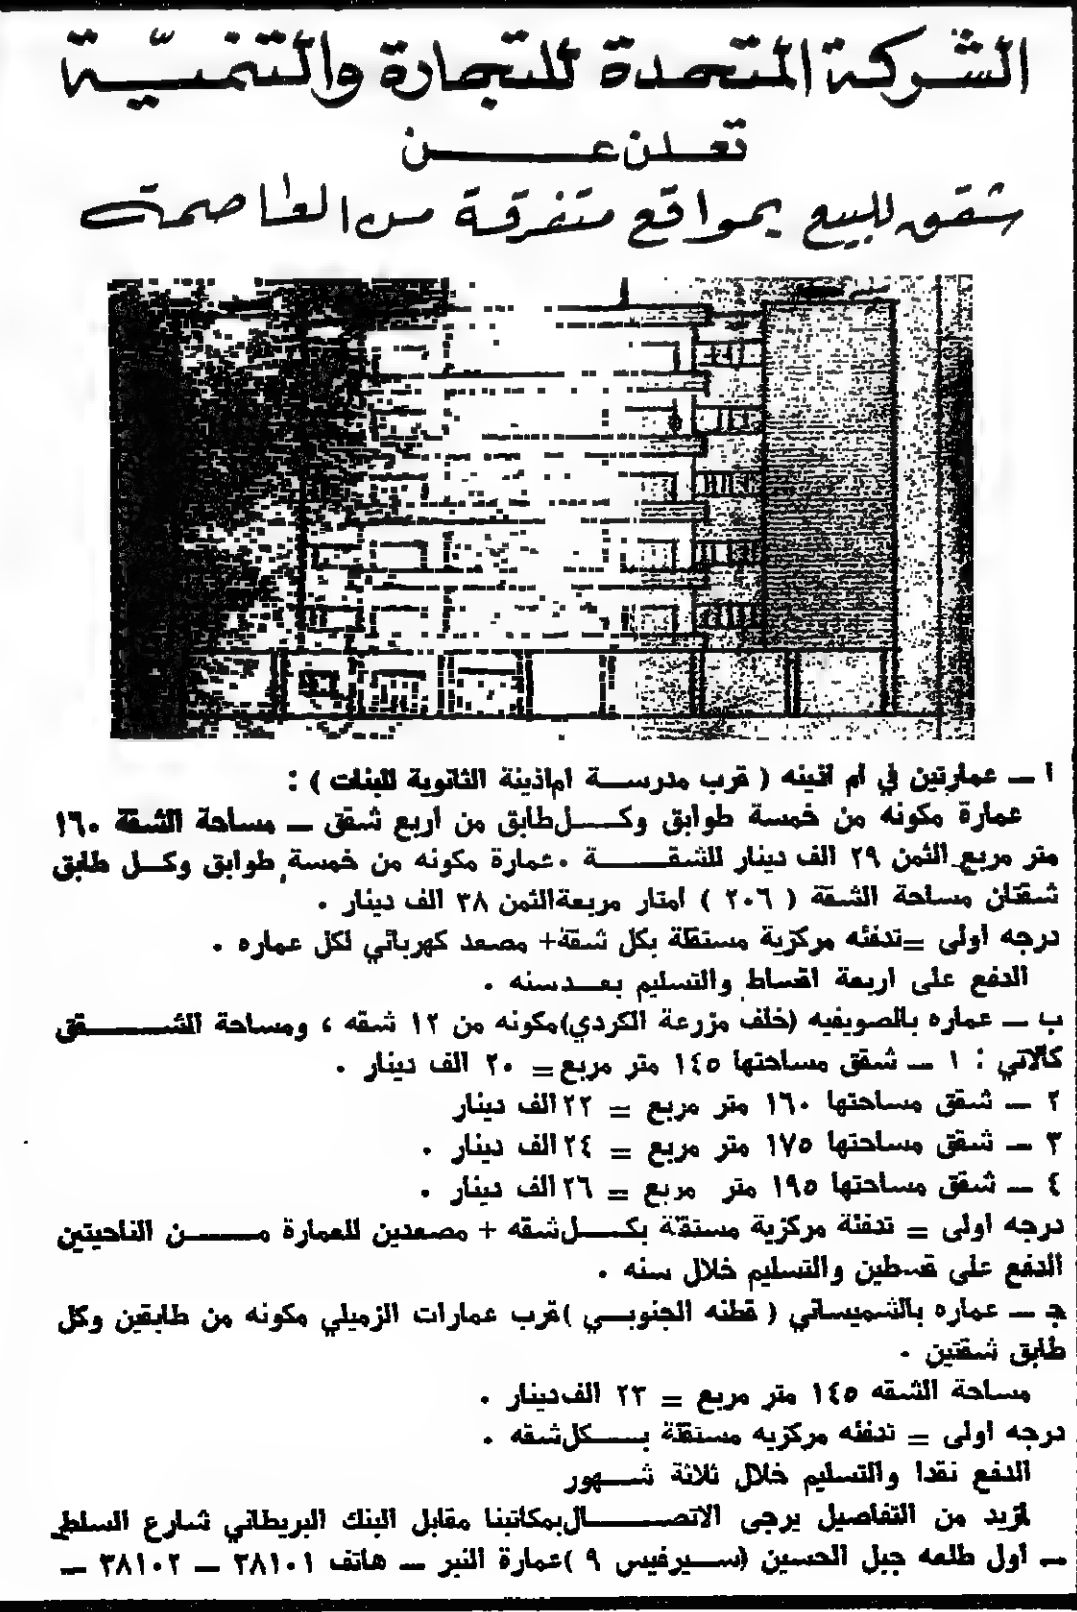 الشركة المتحدة للتجارة والتنميّة
تعلن عن
شقق للبيع بمواقع متفرقة من العاصمة
أ — عمارتين في ام اذينه ( قرب مدرسة ام اذينة الثانوية للبنات ) :
عمارة مكونه من خمسة طوابق وكل طابق من اربع شقق — مساحة الشقة ١٦٠
متر مربع الثمن ٢٩ الف دينار للشقة . عمارة مكونه من خمسة طوابق وكل طابق
شقتان مساحة الشقة ( ٢٠٦ ) امتار مربعة الثمن ٣٨ الف دينار .
درجه اولى = تدفئه مركزية مستقلة بكل شقة + مصعد كهربائي لكل عماره .
الدفع على اربعة اقساط والتسليم بعد سنه .
ب — عماره بالصويفيه (خلف مزرعة الكردي) مكونه من ١٢ شقه ، ومساحة الشقق
كالآتي : ١ — شقق مساحتها ١٤٥ متر مربع = ٢٠ الف دينار .
٢ — شقق مساحتها ١٦٠ متر مربع = ٢٢ الف دينار
٣ — شقق مساحتها ١٧٥ متر مربع = ٢٤ الف دينار .
٤ — شقق مساحتها ١٩٥ متر مربع = ٢٦ الف دينار .
درجه اولى = تدفئة مركزية مستقلة بكل شقه + مصعدين للعمارة من الناحيتين
الدفع على قسطين والتسليم خلال سنه .
جـ — عماره بالشميساني ( قطنه الجنوبي ) قرب عمارات الزميلي مكونه من طابقين وكل
طابق شقتين .
مساحة الشقه ١٤٥ متر مربع = ٢٣ الف دينار .
درجه اولى = تدفئه مركزيه مستقلة بكل شقه .
الدفع نقدا والتسليم خلال ثلاثة شهور
لمزيد من التفاصيل يرجى الاتصال بمكاتبنا مقابل البنك البريطاني شارع السلط
— اول طلعه جبل الحسين (سيرفيس ٩ ) عمارة النبر — هاتف ٣٨١٠١ — ٣٨١٠٢ —